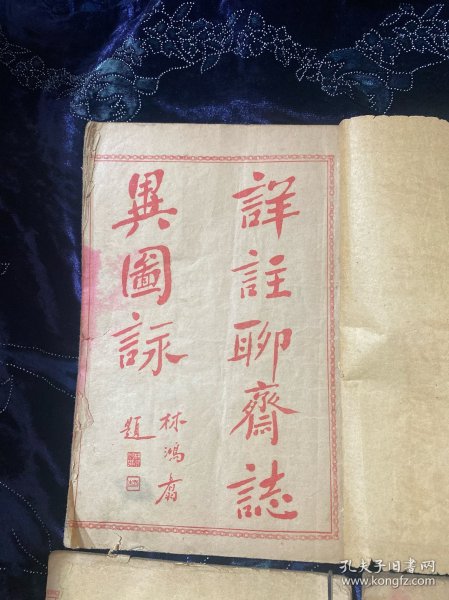 詳註聊齋誌
異圖詠
林鴻翥
題
孔夫子旧书网
www.kongfz.com